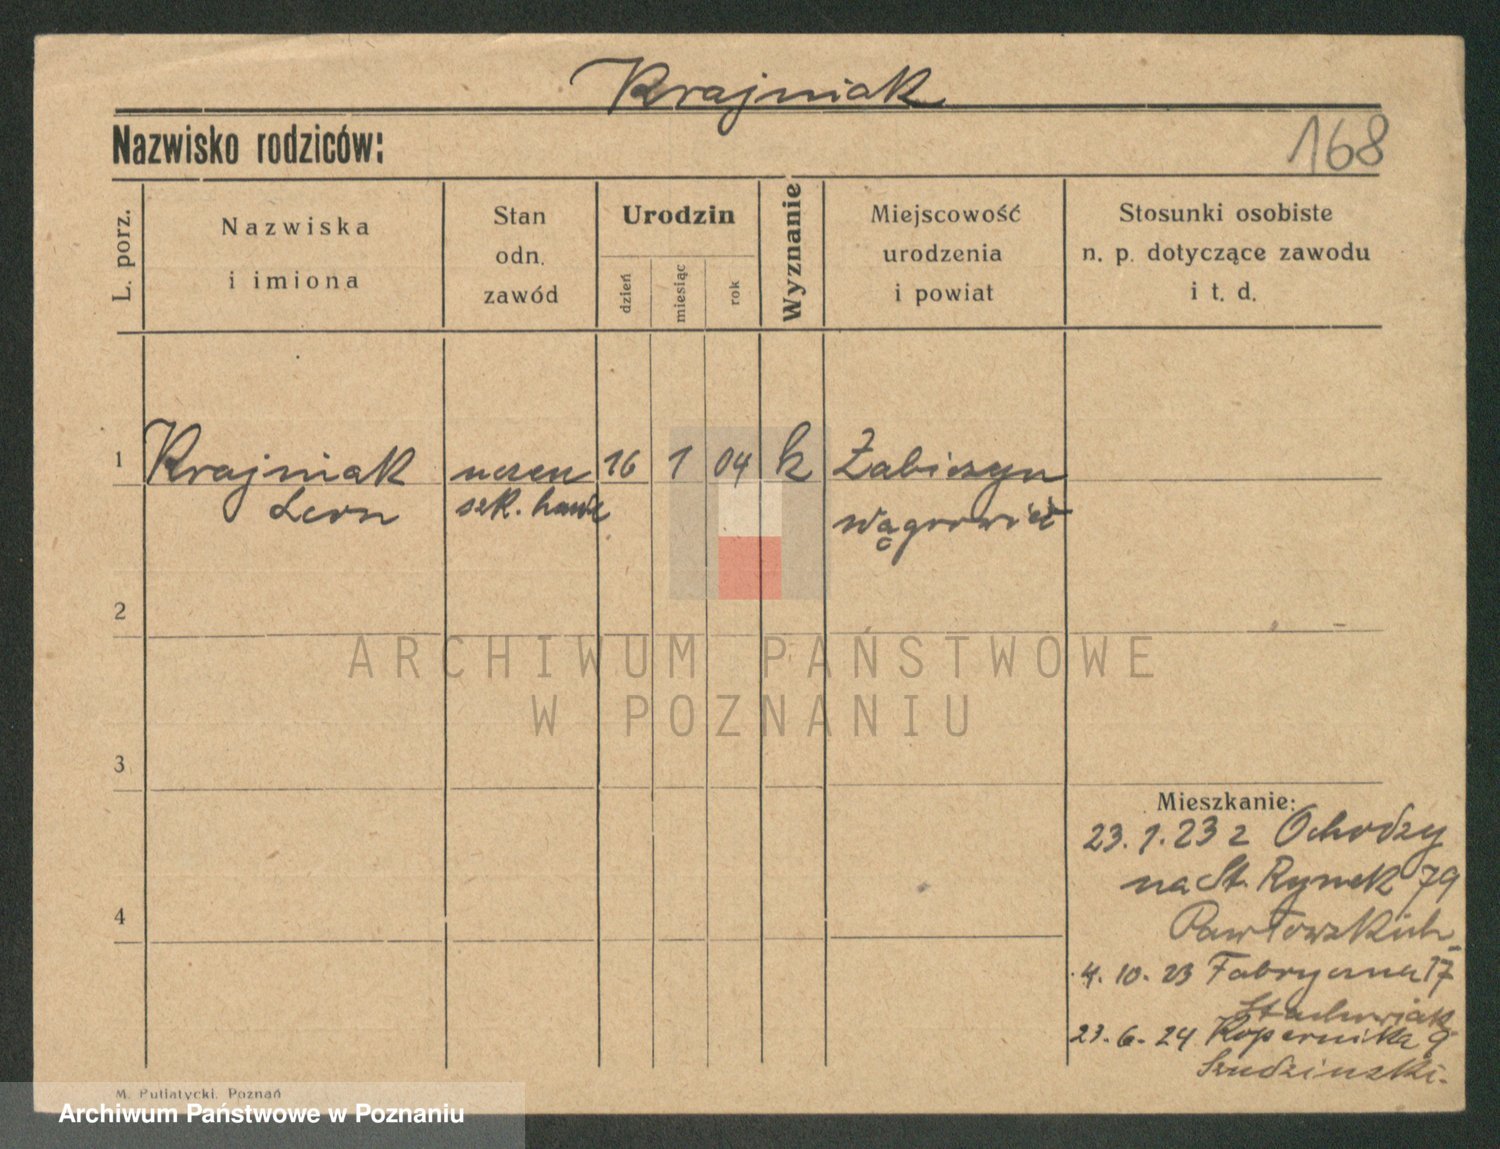 Krajniak
Nazwisko rodziców:
168
L. porz.
Nazwiska
i imiona
Stan
odn.
zawód
Urodzin
dzień
miesiąc
rok
Wyznanie
Miejscowość
urodzenia
i powiat
Stosunki osobiste
n. p. dotyczące zawodu
i t. d.
1 Krajniak uczen 16 1 04 k Żabiczyn
Leon szk. handl Wągrowiec
2
ARCHIWUM PAŃSTWOWE
W POZNANIU
3
Mieszkanie:
23.1.23 z Ochodzy
na St. Rynek 79
Pawłowskich
4
4.10.23 Fabryczna 17
Stachowiak
23.6.24 Kopernika 9
Szudzinski.
M. Putiatycki. Poznań
Archiwum Państwowe w Poznaniu